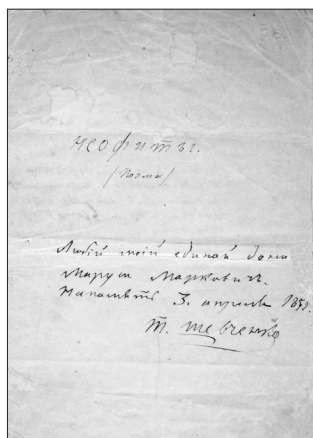 Неофиты.
(Поэма)
Любій моій єдиной доні
Марусі Маркович.
На память 3 апреля 1859.
Т. Шевченко